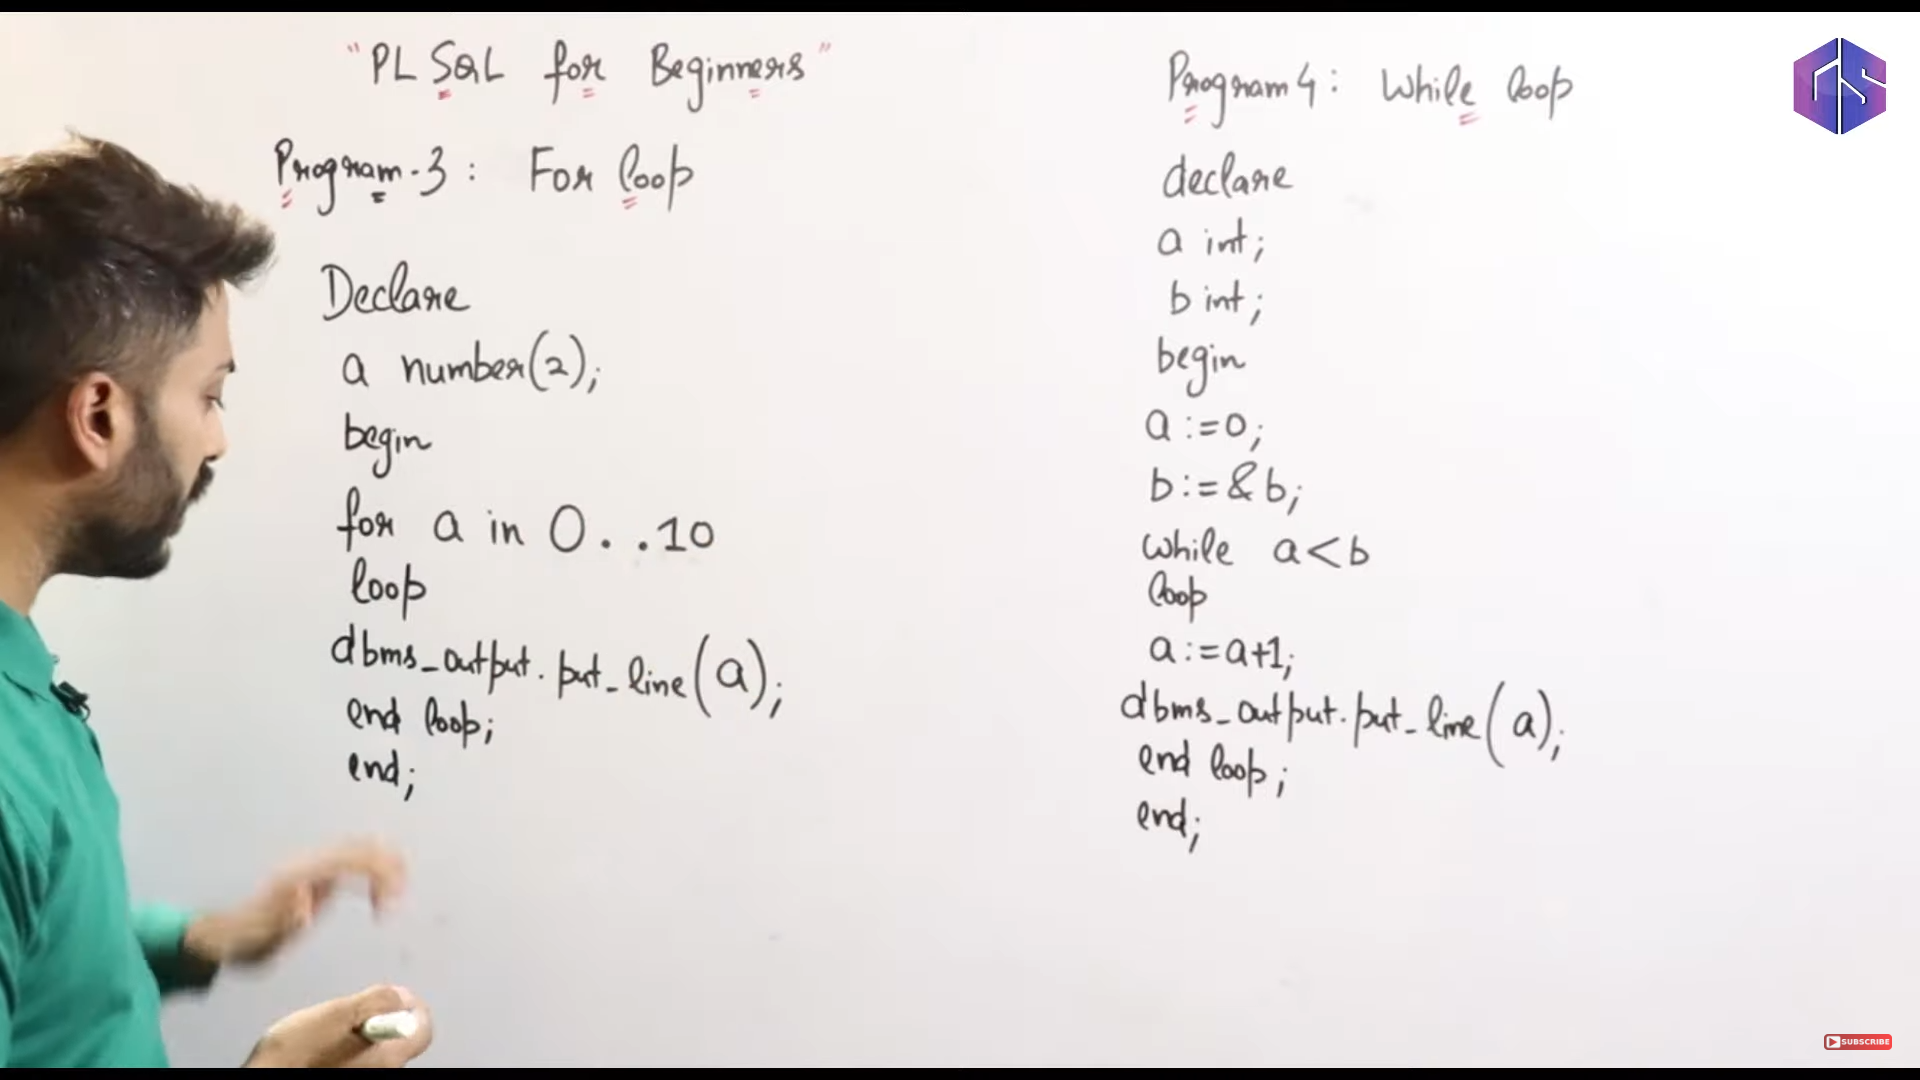 "PL SQL for Beginners"
Program-3: For loop
Declare
a number(2);
begin
for a in 0..10
loop
dbms_output.put_line(a);
end loop;
end;
Program 4: While loop
declare
a int;
b int;
begin
a:=0;
b:=&b;
while a<b
loop
a:=a+1;
dbms_output.put_line(a);
end loop;
end;
GS
SUBSCRIBE